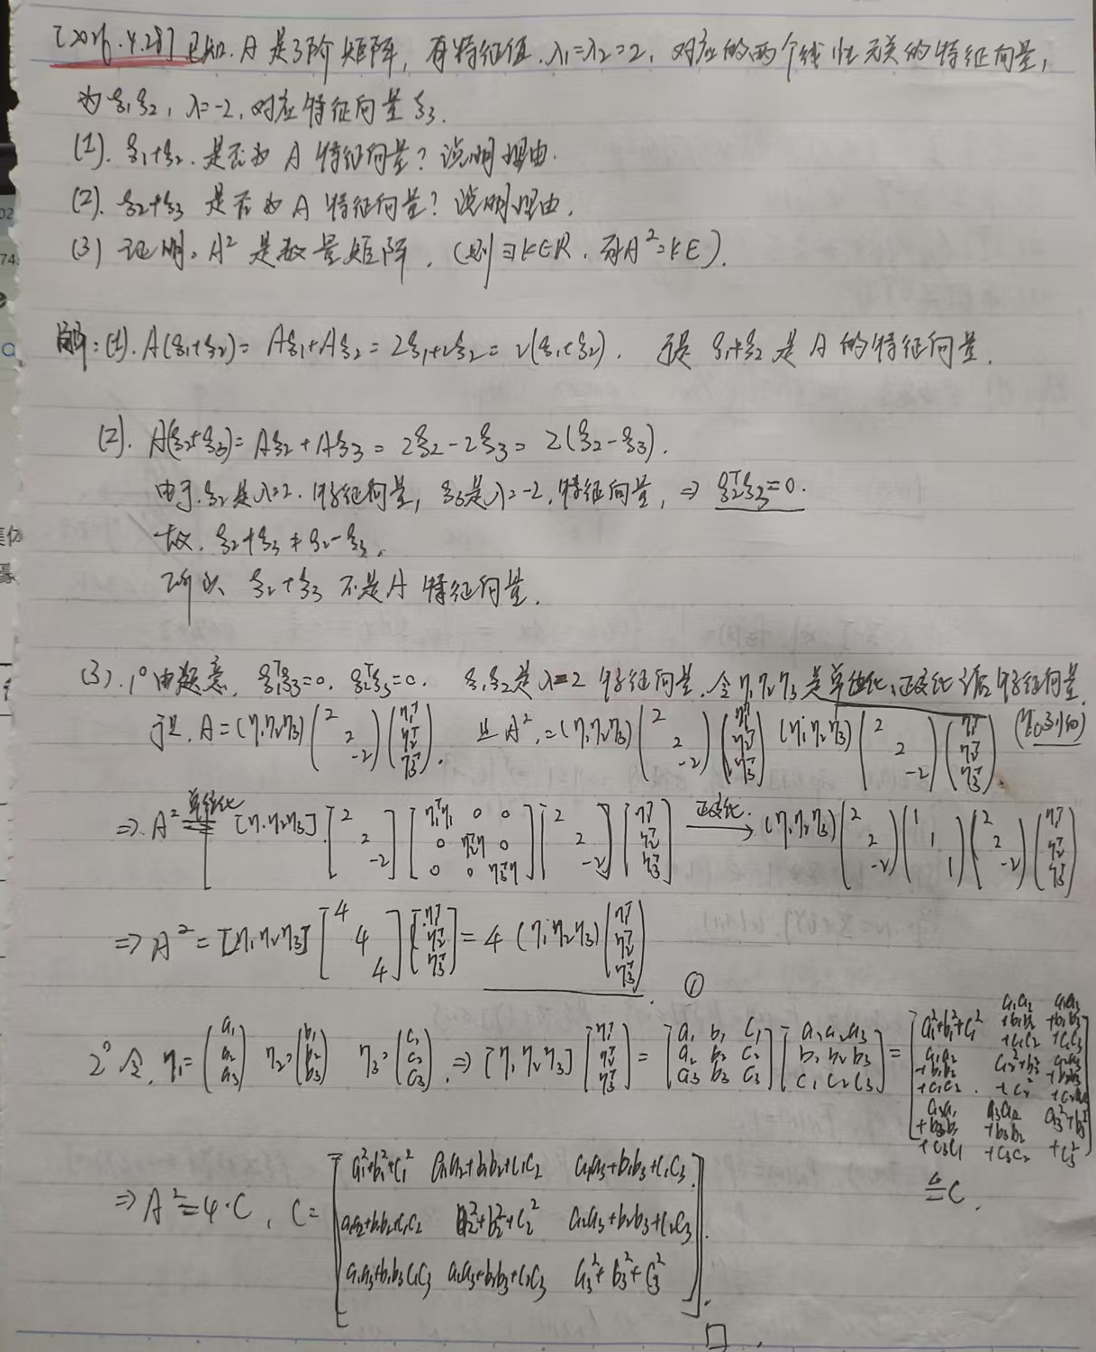 [2026.4.28] 已知.A是3阶矩阵,有特征值.λ₁=λ₂=2,对应的两个线性无关的特征向量,
为ξ₁ξ₂,λ=-2,对应特征向量ξ₃.
(1).ξ₁+ξ₂.是否为A特征向量?说明理由.
(2).ξ₂+ξ₃是否为A特征向量?说明理由.
(3)证明:A²是数量矩阵.(则∃k∈R.有A²=kE).
解:(1).A(ξ₁+ξ₂)=Aξ₁+Aξ₂=2ξ₁+2ξ₂=2(ξ₁+ξ₂).于是ξ₁+ξ₂是A的特征向量.
(2).A(ξ₂+ξ₃)=Aξ₂+Aξ₃=2ξ₂-2ξ₃=2(ξ₂-ξ₃).
由于.ξ₂是λ=2.特征向量,ξ₃是λ=-2,特征向量,⇒ξ₂ᵀξ₃=0.
故.ξ₂+ξ₃≠ξ₂-ξ₃.
所以ξ₂+ξ₃不是A特征向量.
(3).1°由题意,ξ₁ᵀξ₃=0.ξ₂ᵀξ₃=0.ξ₁ξ₂是λ=2特征向量.令η₁η₂η₃是单位化,正交化后特征向量.
于是.A=(η₁η₂η₃)(2 2 -2)(η₁ᵀ η₂ᵀ η₃ᵀ).且A²=(η₁η₂η₃)(2 2 -2)(η₁ᵀ η₂ᵀ η₃ᵀ)(η₁η₂η₃)(2 2 -2)(η₁ᵀ η₂ᵀ η₃ᵀ).
⇒A² 单位化= [η₁η₂η₃][2 2 -2][η₁ᵀη₁ 0 0 0 η₂ᵀη 0 0 0 η₃ᵀη][2 2 -2][η₁ᵀ η₂ᵀ η₃ᵀ] 正交化→ (η₁η₂η₃)(2 2 -2)(1 1 1)(2 2 -2)(η₁ᵀ η₂ᵀ η₃ᵀ)
⇒A²=[η₁η₂η₃][4 4 4][η₁ᵀ η₂ᵀ η₃ᵀ]=4(η₁η₂η₃)(η₁ᵀ η₂ᵀ η₃ᵀ). ①
2°令.η₁=(a₁ a₂ a₃) η₂=(b₁ b₂ b₃) η₃=(c₁ c₂ c₃).⇒[η₁η₂η₃][η₁ᵀ η₂ᵀ η₃ᵀ]=[a₁ b₁ c₁ a₂ b₂ c₂ a₃ b₃ c₃][a₁a₂a₃ b₁b₂b₃ c₁c₂c₃]=[a₁²+b₁²+c₁² a₁a₂+b₁b₂+c₁c₂ a₁a₃+b₁b₃+c₁c₃ a₁a₂+b₁b₂+c₁c₂ a₂²+b₂²+c₂² a₂a₃+b₂b₃+c₂c₃ a₃a₁+b₃b₁+c₃c₁ a₃a₂+b₃b₂+c₃c₂ a₃²+b₃²+c₃²]
≜C.
⇒A²=4·C,C=[a₁²+b₁²+c₁² a₁a₂+b₁b₂+c₁c₂ a₁a₃+b₁b₃+c₁c₃
a₁a₂+b₁b₂+c₁c₂ a₂²+b₂²+c₂² a₂a₃+b₂b₃+c₂c₃
a₁a₃+b₁b₃c₁c₃ a₂a₃+b₂b₃+c₂c₃ a₃²+b₃²+c₃²].
□.